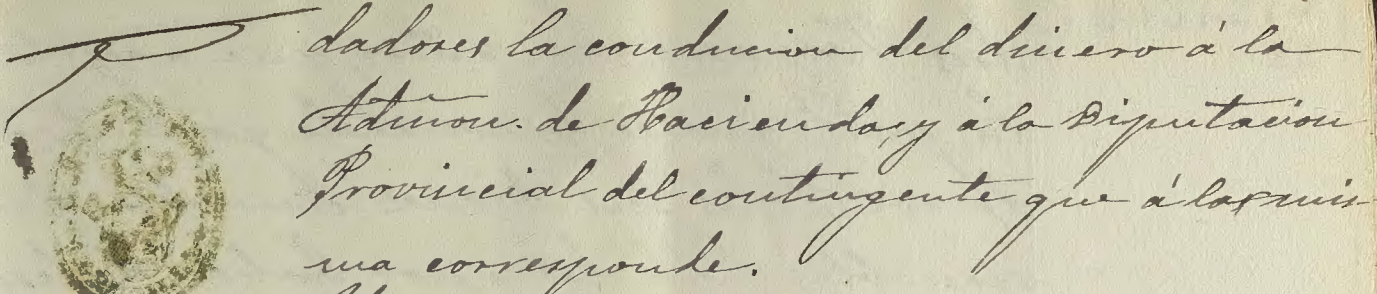 dadores la conducion del dinero á la
Admon. de Hacienda, y á la Diputacion
Provincial del contingente que á la mis-
ma corresponde.